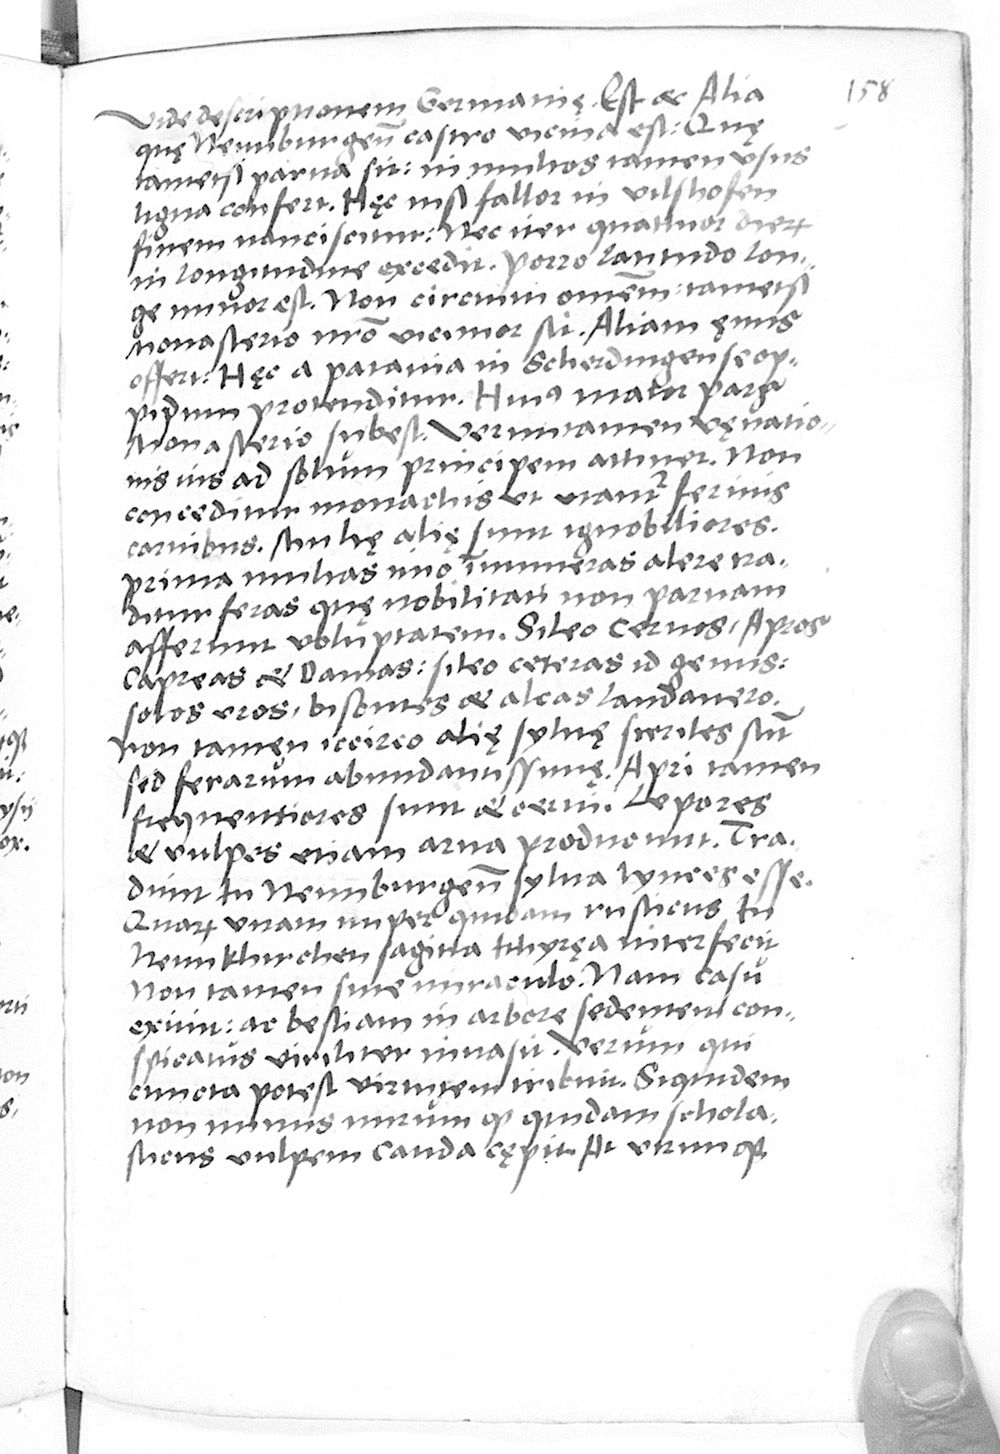 158
Vide descriptionem Germanię. Est & Alia
quę Neunburgen̄ castro vicina est: Quę
tametsi parua sit: in multos tamen vsus
ligna confert. Hęc nisi fallor in vilshofen
finem nanciscitur: Nec iter quattuor dieꝝ
in longitudine excedit. Porro latitudo lon-
ge minor est. Non circuiui omnem: tametsi
Monasterio nr̄o vicinior sit. Aliam ęnus
offert: Hęc a patauia in Scherdingense op-
pidum protenditur. Huiꝰ maior pars
Monasterio subest. Veruntamen vęnatio-
nis ius ad solum principem attinet. Non
conceditur monachis vt vtantᷣ ferinis
carnibus. Multę alię sunt ignobiliores.
prima multas imo īnumeras alere tra-
ditur feras quę nobilitati non paruam
afferunt voluptatem. Sileo Ceruos, Apros
Capreas & Damas: sileo ceteras id genus:
solos vros, bisontes & alces laudauero.
Non tamen iccirco alię syluę steriles sūt
sed ferarum abundantissimę. Apri tamen
frequentiores sunt & cerui. Lepores
& vulpes etiam arua producunt. Tra-
dunt in Neunburgen̄ sylua lynces esse.
Quaꝝ vnam nuper quidam rusticus in
Neunkhirchen sagitta thyręa interfecit
Non tamen sine miraculo. Nam casu
exiuit: ac bestiam in arbore sedentem con-
spicatus viriliter inuasit. Verum qui
cuncta potest virtutem tribuit. Siquidem
non minus mirum ꝙ quidam schola-
sticus vulpem cauda cępit. At vtrunqꝫ